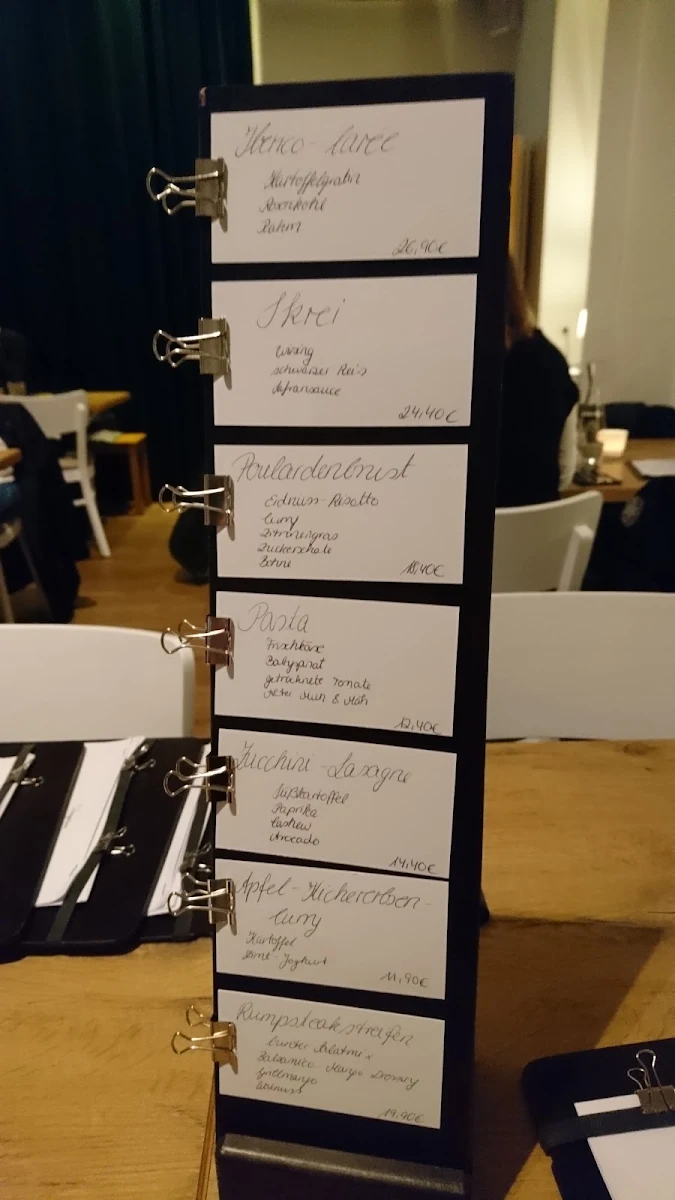 Iberico-Caree
Kartoffelgratin
Rosenkohl
Rahm
26,90€
Skrei
Wirsing
schwarzer Reis
Safransauce
24,40€
Poulardenbrust
Erdnuss-Risotto
Curry
Zitronengras
Zuckerschote
Bohne
18,40€
Pasta
Frischkäse
Babyspinat
getrocknete Tomate
Alter Muh & Mäh
12,40€
Zucchini-Lasagne
Süßkartoffel
Paprika
Cashew
Avocado
14,40€
Apfel-Kichererbsen-
Curry
Kartoffel
Zimt-Joghurt
11,90€
Rumpsteakstreifen
bunter Blattmix
Balsamico-Mango Dressing
Grillmango
19,90€